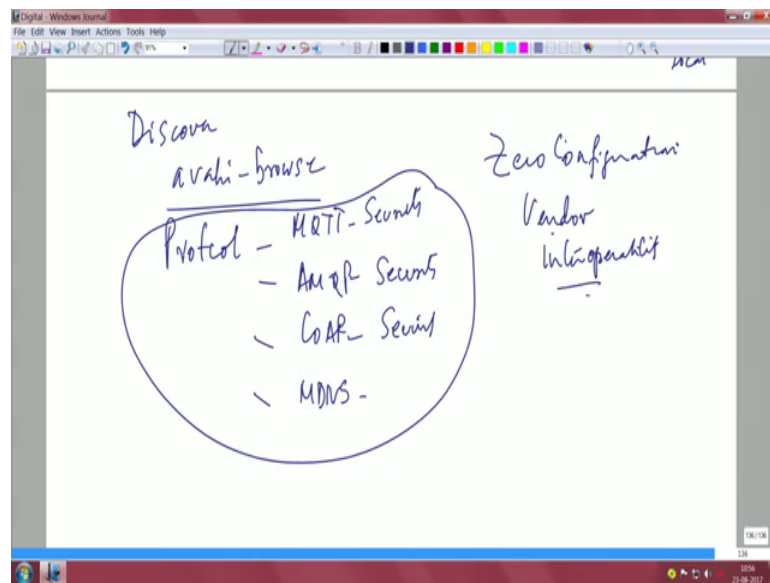 Digital - Windows Journal
File Edit View Insert Actions Tools Help
91%
Local
Discover
avahi-browse
Protocol - MQTT - Security
- AMQP - Security
- CoAP - Security
- MDNS -
Zero Configuration
Vendor
Interoperability
136 / 136
136
10:56
23-08-2017